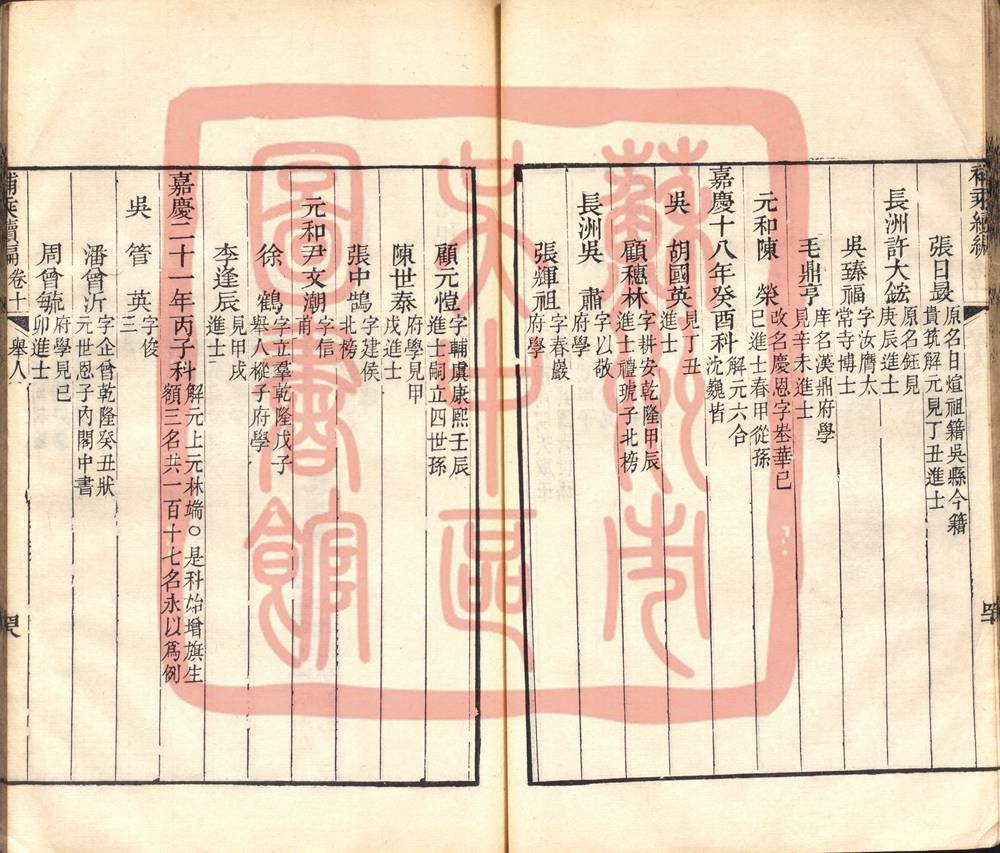 張日晸 原名日煊祖籍吳縣今籍貴筑解元見丁丑進士
長洲許大鋐 原名鈺見庚辰進士
吳臻福 字汝膺太常寺博士
毛鼎亨 庠名漢鼎府學見辛未進士
元和陳榮 改名慶恩字埜華巳巳進士春甲從孫
嘉慶十八年癸酉科 解元六合沈巍皆
吳胡國英 見丁丑進士
顧穗林 字耕安乾隆甲辰進士禮琥子北榜
長洲吳肅 字以敬府學
張輝祖 字春巖府學
顧元愷 字輔虞康熙壬辰進士嗣立四世孫
陳世泰 府學見甲戌進士
張中鵠 字建侯北榜
元和尹文潮 字信甫
徐鶴 字立羣乾隆戊子舉人檖子府學
李逢辰 見甲戌進士
嘉慶二十一年丙子科 解元上元林端○是科始增旗生額三名共一百十七名永以爲例
吳管英 字俊三
潘曾沂 字企曾乾隆癸丑狀元世恩子內閣中書
周曾毓 府學見己卯進士
補乘續編 卷十 舉人
蘇州市
吳中區
圖書館